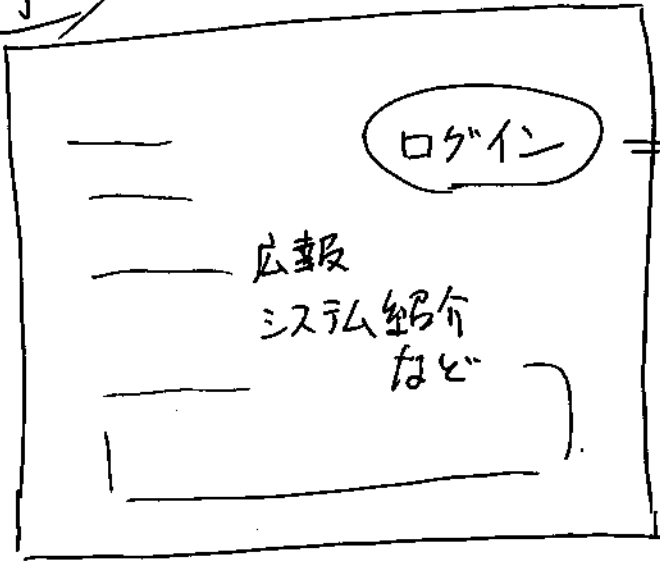 ログイン
広報
システム紹介
など